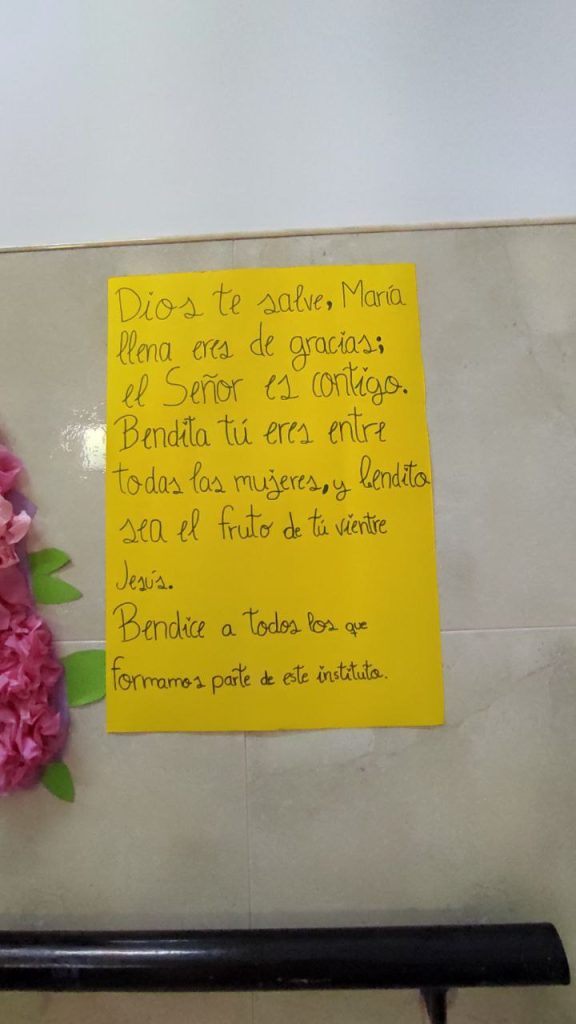 Dios te salve, María
llena eres de gracias;
el Señor es contigo.
Bendita tú eres entre
todas las mujeres, y bendito
sea el fruto de tú vientre
Jesús.
Bendice a todos los que
formamos parte de este instituto.